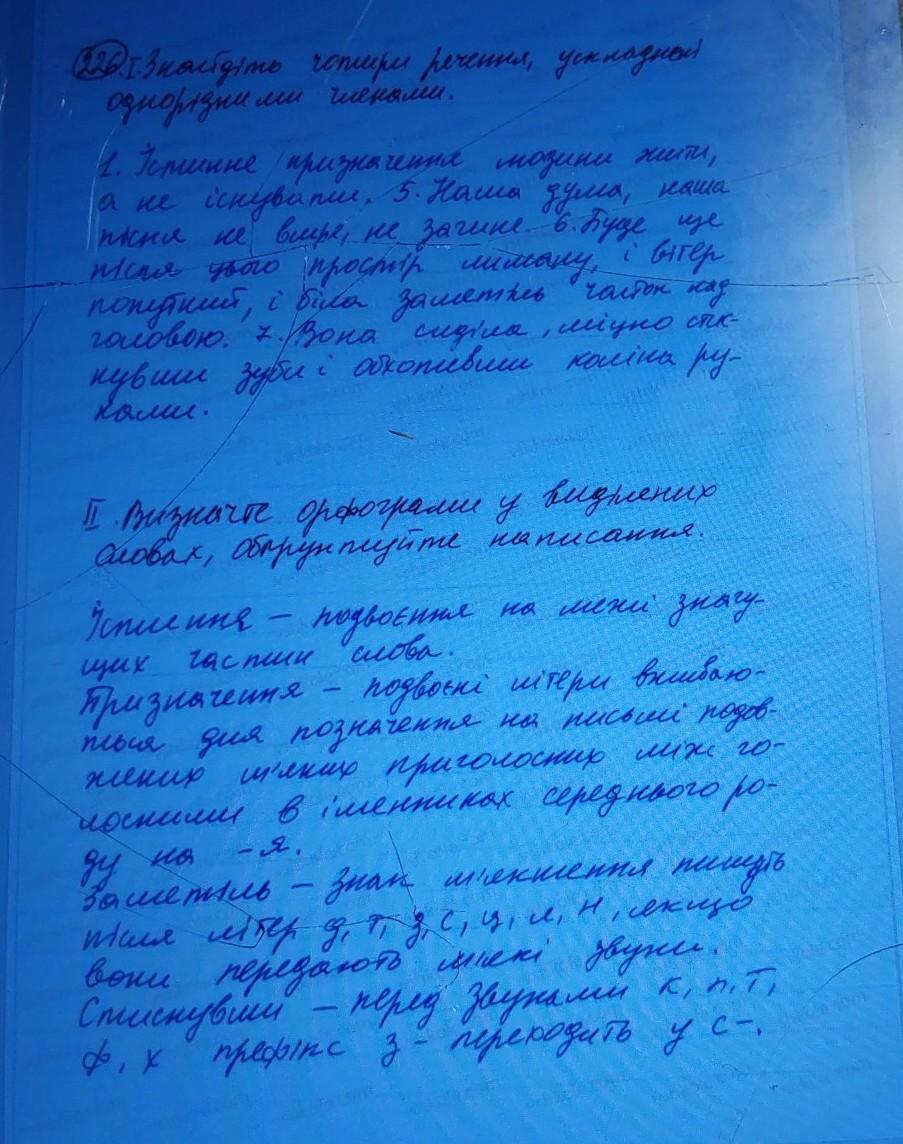 326. I. Знайдіть чотири речення, ускладнені
однорідними членами.
1. Істинне призначення людини жити,
а не існувати. 5. Наша дума, наша
пісня не вмре, не загине. 6. Буде ще
після цього простір лиману, і вітер
попутний, і біла заметіль чайок над
головою. 7. Вона сиділа, міцно стис-
нувши зуби і обхопивши коліна ру-
ками.
II. Визначте орфограми у виділених
словах, обґрунтуйте написання.
– подвоєння на межі значу-
щих частин слова.
Призначення – подвоєні літери вжива-
ться для позначення на письмі подов-
жених м'яких приголосних між го-
лосними в іменниках середнього ро-
ду на -я.
Заметіль – знак м'якшення пишуть
після літер д, т, з, с, ц, л, н, якщо
вони передають м'які звуки.
Стиснувши – перед звуками к, п, т,
ф, х префікс з- переходить у с-.